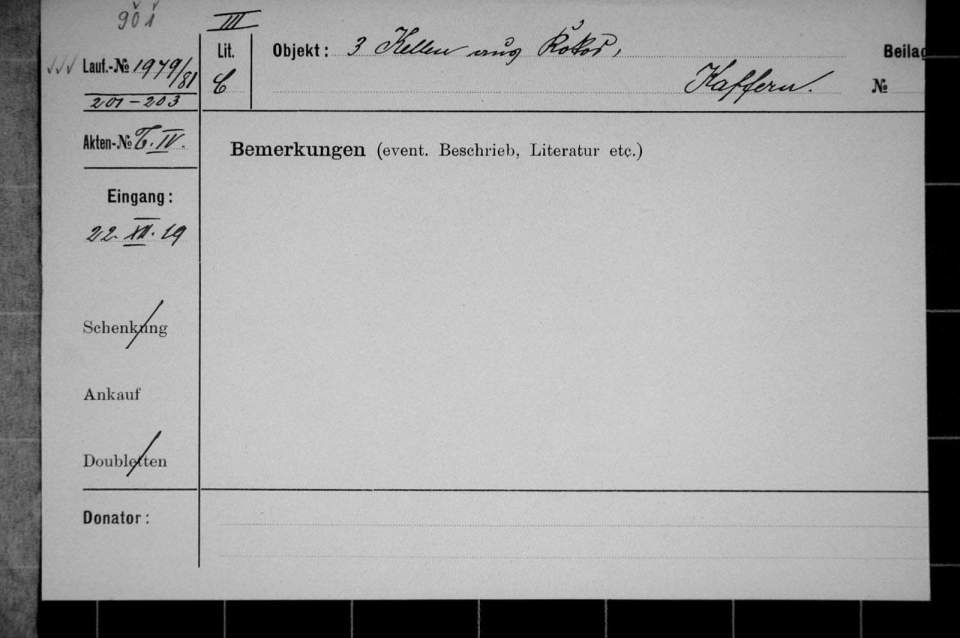 III
Lit.
C
Objekt: 3 Kellen aus Kokos,
Kaffern.
Beilag
№
Lauf.-№ 1979/81
201-203
Akten-№ T. IV.
Eingang:
22. XII. 19
Schenkung
Ankauf
Doubletten
Donator:
Bemerkungen (event. Beschrieb, Literatur etc.)